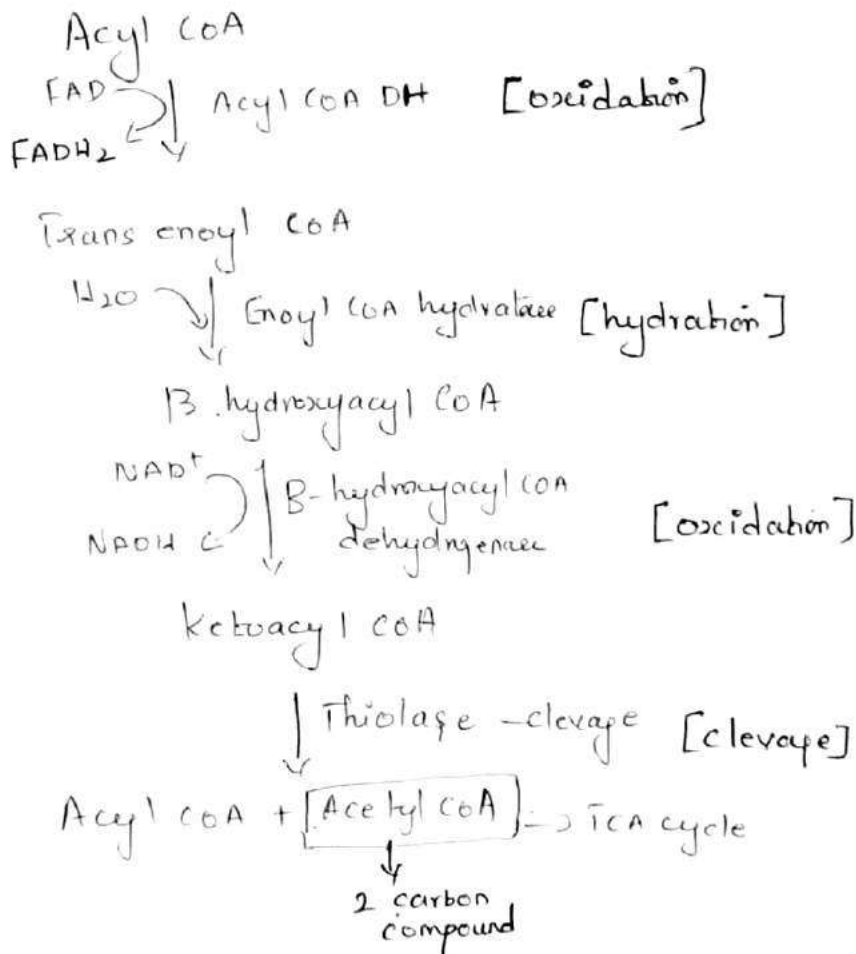 Acyl CoA
FAD
Acyl CoA DH [oxidation]
FADH2
Trans enoyl CoA
H2O
Enoyl CoA hydratase [hydration]
B. hydroxyacyl CoA
NAD+
B-hydroxyacyl CoA
NADH dehydrogenase [oxidation]
Ketoacyl CoA
Thiolase -clevage [clevage]
Acyl CoA + Acetyl CoA -> TCA cycle
2 carbon
compound